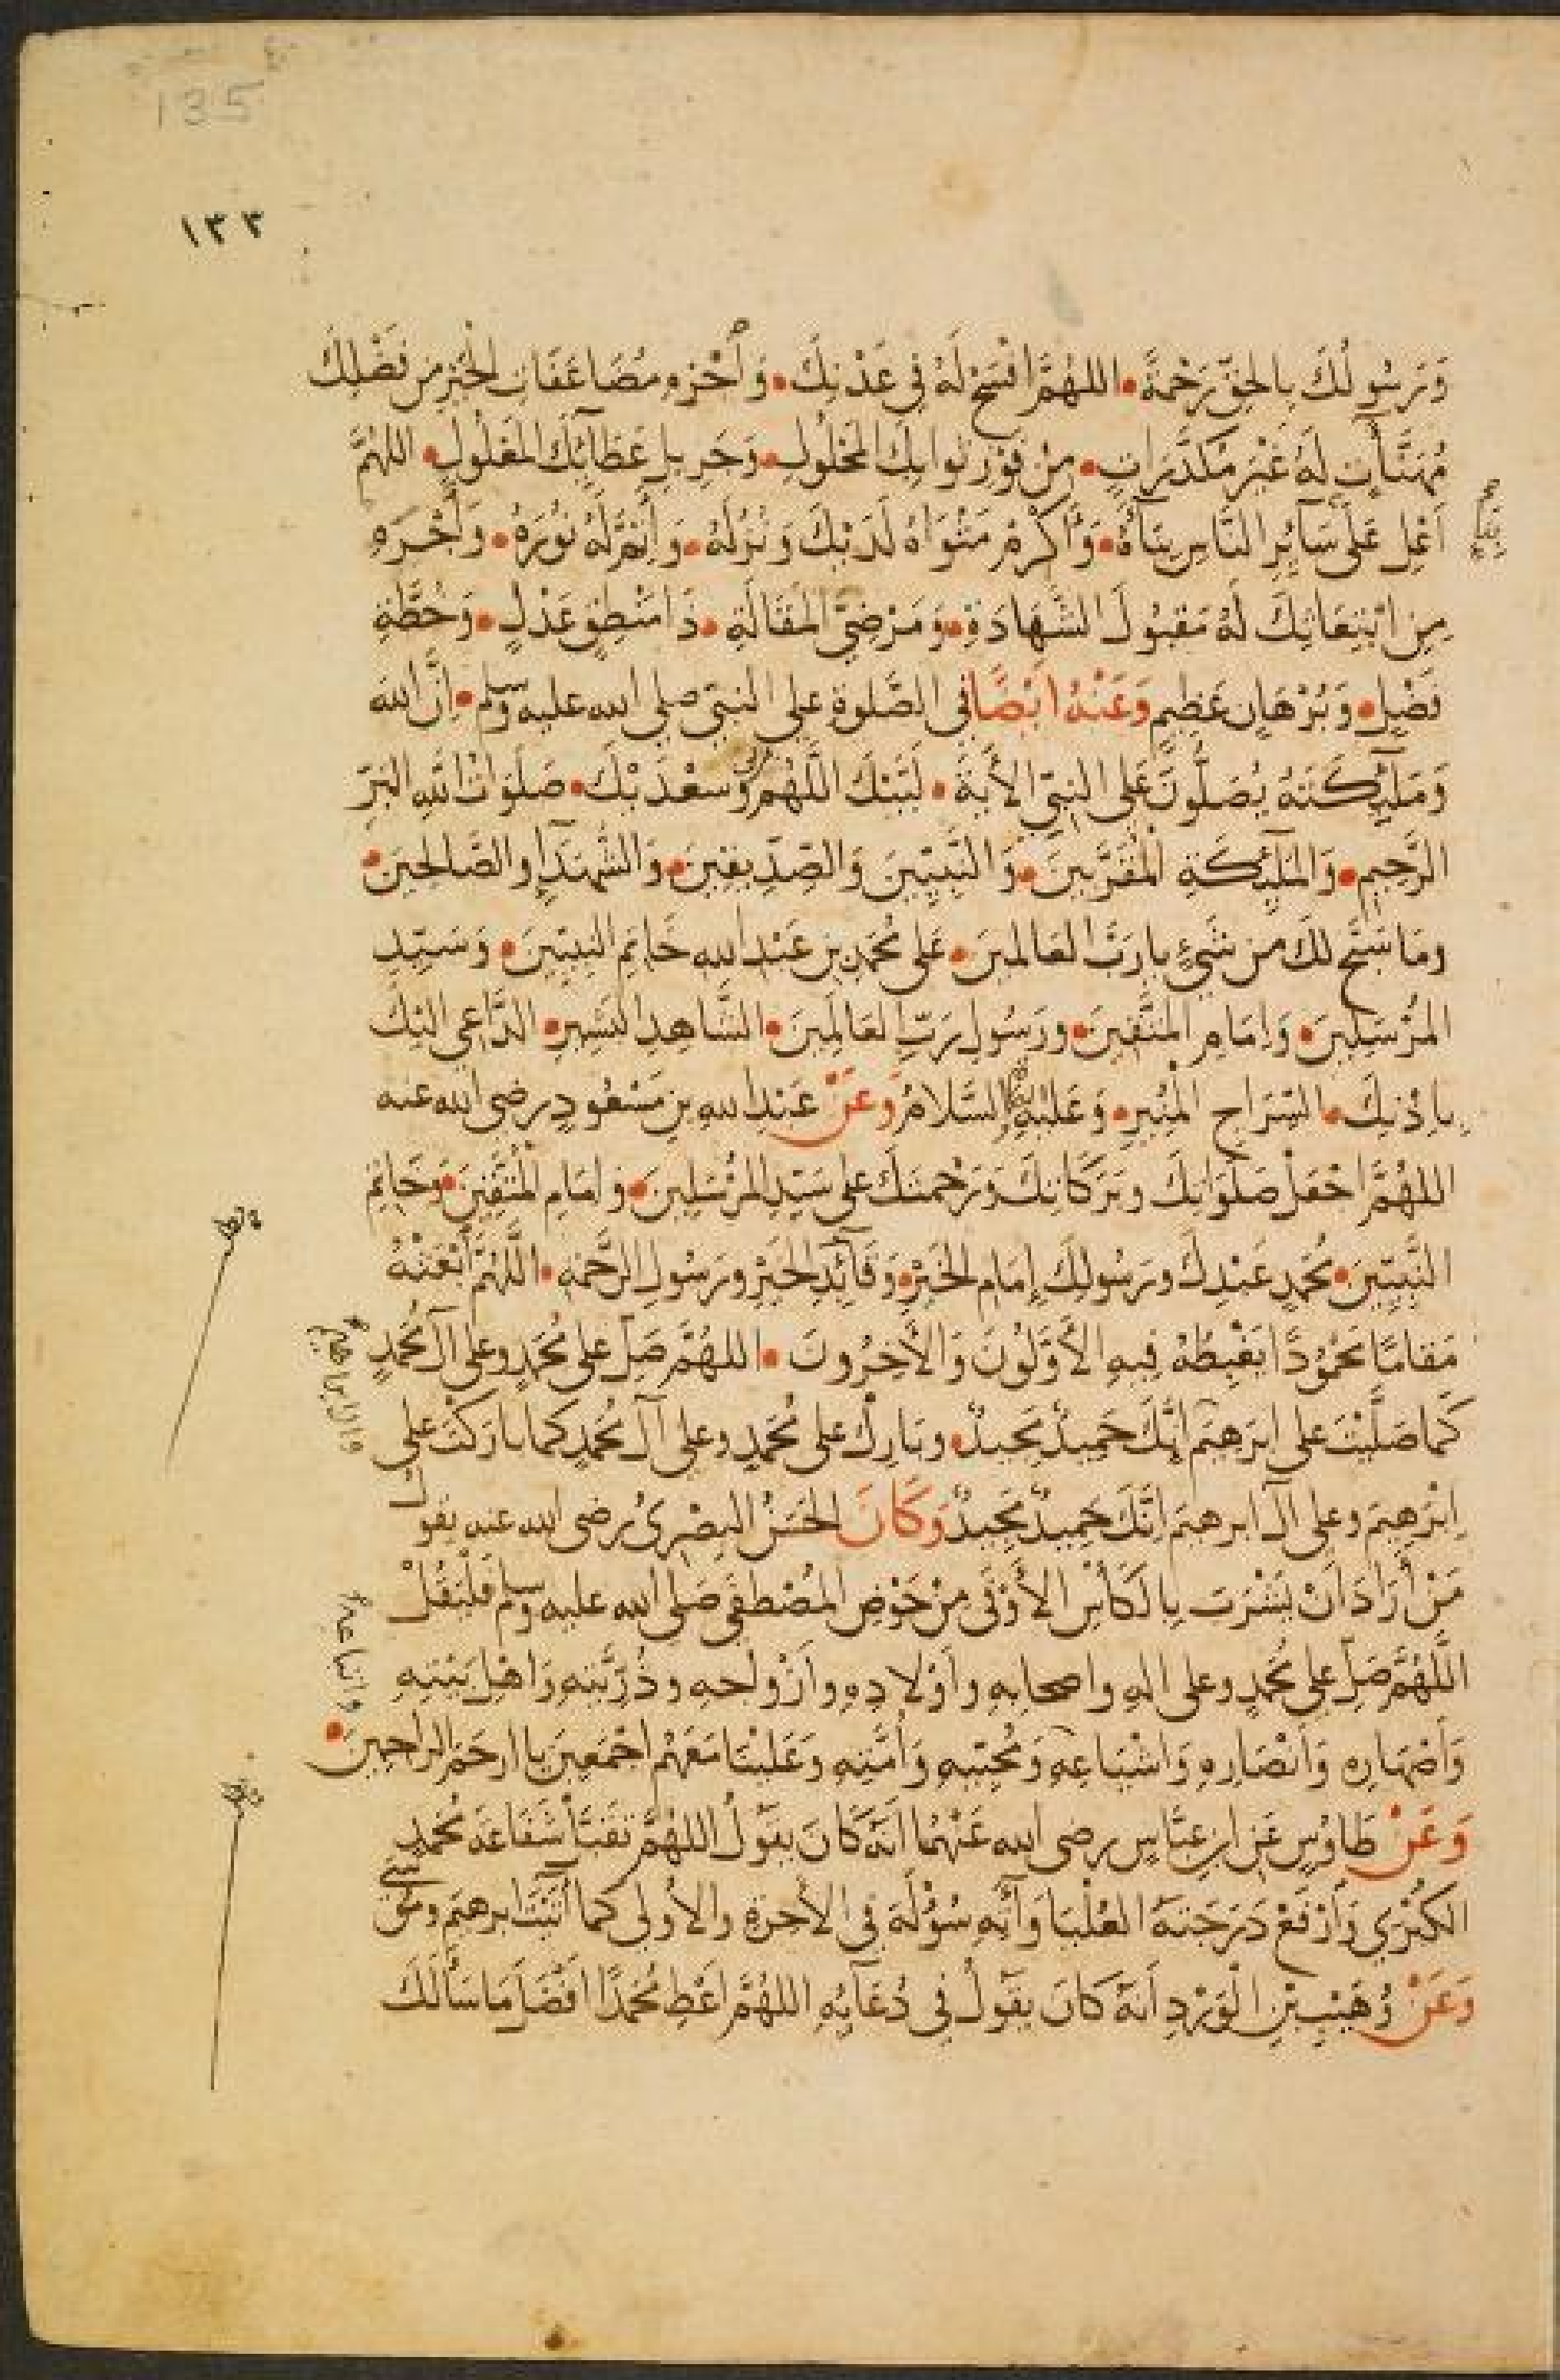 135
١٣٣
وَرَسُولُكَ بِالحَقِّ رَحْمَةً • اللهُمَّ افْسَحْ لَهُ فِي عَدْنِكَ • وَاجْزِهِ مُضَاعَفَاتِ الخَيْرِ مِن فَضْلِكَ
مُهَنَّآتٍ لَهُ غَيْرَ مُكَدَّرَاتٍ • مِنْ فَوْزِ ثَوَابِكَ المَحْلُولِ • وَجَزِيلِ عَطَآئِكَ المَعْلُولِ • اللهُمَّ
أَعْلِ عَلَى سَآئِرِ النَّاسِ بِنَآءَهُ • وَأَكْرِمْ مَثْوَاهُ لَدَيْكَ وَنُزُلَهُ • وَأَتْمِمْ لَهُ نُورَهُ • وَاجْزِهِ
مِنِ ابْتِعَاثِكَ لَهُ مَقْبُولَ الشَّهَادَةِ • وَمَرْضِيَّ المَقَالَةِ • ذَا مَنْطِقٍ عَدْلٍ • وَخُطَّةٍ
فَصْلٍ • وَبُرْهَانٍ عَظِيمٍ وَعَنْهُ أَيْضًا فى الصَّلوةِ على النبىّ صلى الله عليه وسلم • إنَّ اللهَ
وَمَلٰٓئِكَتَهُ يُصَلُّونَ عَلَى النبىّ الأيَةَ • لَبَّيْكَ اللَّهُمَّ ربى وَسَعْدَيْكَ • صَلَوَاتُ اللهِ البَرِّ
الرَّحِيمِ • وَالمَلٰٓئِكَةِ الْمُقَرَّبِينَ • وَالنَّبِيّينَ وَالصِّدِّيقِينَ • وَالشُّهَدَآءِ وَالصَّالِحِينَ •
وَمَا سَبَّحَ لَكَ مِن شَىْءٍ يارَبَّ العَالمينَ • عَلى مُحَمَّدِ بنِ عَبْدِ اللهِ خَاتَمِ النبِيّينَ • وَسَيِّدِ
المُرْسَلِينَ • وَإمَامِ المُتَّقِينَ • ورَسُولِ رَبِّ العَالَمِينَ • الشَّاهِدِ البَشِيرِ • الدَّاعِي إلَيْكَ
بِاِذْنِكَ • السِّرَاجِ الْمُنِيرِ • وَعَلَيْهِ السَّلامُ وَعَنْ عَبْدِ اللهِ بنِ مَسْعُودٍ رضى الله عنه
اللهُمَّ اجْعَلْ صَلَوَاتِكَ وَبَرَكَاتِكَ وَرَحْمَتَكَ على سَيِّدِ المُرْسَلِينَ • وَإمَامِ الْمُتَّقِينَ • وَخَاتَمِ
النَّبِيِّينَ • مُحَمَّدٍ عَبْدِكَ وَرَسُولِكَ إمَامِ الخَيْرِ • وَقَآئِدِ الخَيْرِ وَرَسُولِ الرَّحْمَةِ • اللَّهُمَّ ابْعَثْهُ
مَقَامًا مَحْمُودًا يَغْبِطُهُ فِيهِ الأوَّلُونَ وَالأخِرُونَ • اللهُمَّ صَلِّ على مُحَمَّدٍ وعلى آلِ مُحَمَّدٍ
كَمَا صَلَّيْتَ على ابرَهِيمَ إنَّكَ حَمِيدٌ مَجِيدٌ • وَبَارِكْ على مُحَمَّدٍ وعلى آلِ مُحَمَّدٍ كما بَارَكْتَ على
وآل ابراهيم
ابْرَهِيمَ وعلى آلِ ابرهيمَ انَّكَ حَمِيدٌ مَجِيدٌ وَكَانَ الحَسَنُ البصْرىُّ رضى الله عنه يقول
مَنْ أَرَادَ أنْ يَشْرَبَ بِالكَأسِ الأوْفَى مِنْ حَوْضِ المُصْطَفَى صَلى الله عليه وسلم فَلْيَقُلْ
اللَّهُمَّ صَلِّ على مُحَمَّدٍ وعلى الِهِ واصحابِهِ وأوْلادِهِ وأزْواجِهِ وذُرِّيَّتِهِ وَاهْلِ بَيْتِهِ
واتباعه
وَأصْهَارِهِ وَأنْصَارِهِ وَاشْيَاعِهِ وَمُحِبّيهِ وَأُمَّتِهِ وَعَلَيْنَا مَعَهُم اجْمَعِينَ يا ارحَمَ الراحِمينَ •
وَعَنْ طَاوُسٍ عَنِ ابنِ عبّاسٍ رضى الله عَنْهُمَا أنَّهُ كَانَ يَقولُ اللهُمَّ تَقَبَّلْ شَفَاعَةَ مُحَمَّدٍ
الكُبْرَى وَارْفَعْ دَرَجَتَهُ العُلْيَا وَآتِهِ سُؤْلَهُ فى الأخِرَةِ والأولى كما آتَيْتَ ابرهيمَ وموسى
وَعَنْ وُهَيْبِ بْنِ الوَرْدِ أنَّهُ كَانَ يَقُولُ فى دُعَآئِهِ اللهُمَّ اعْطِ مُحَمَّدًا أفْضَلَ مَا سَألَكَ